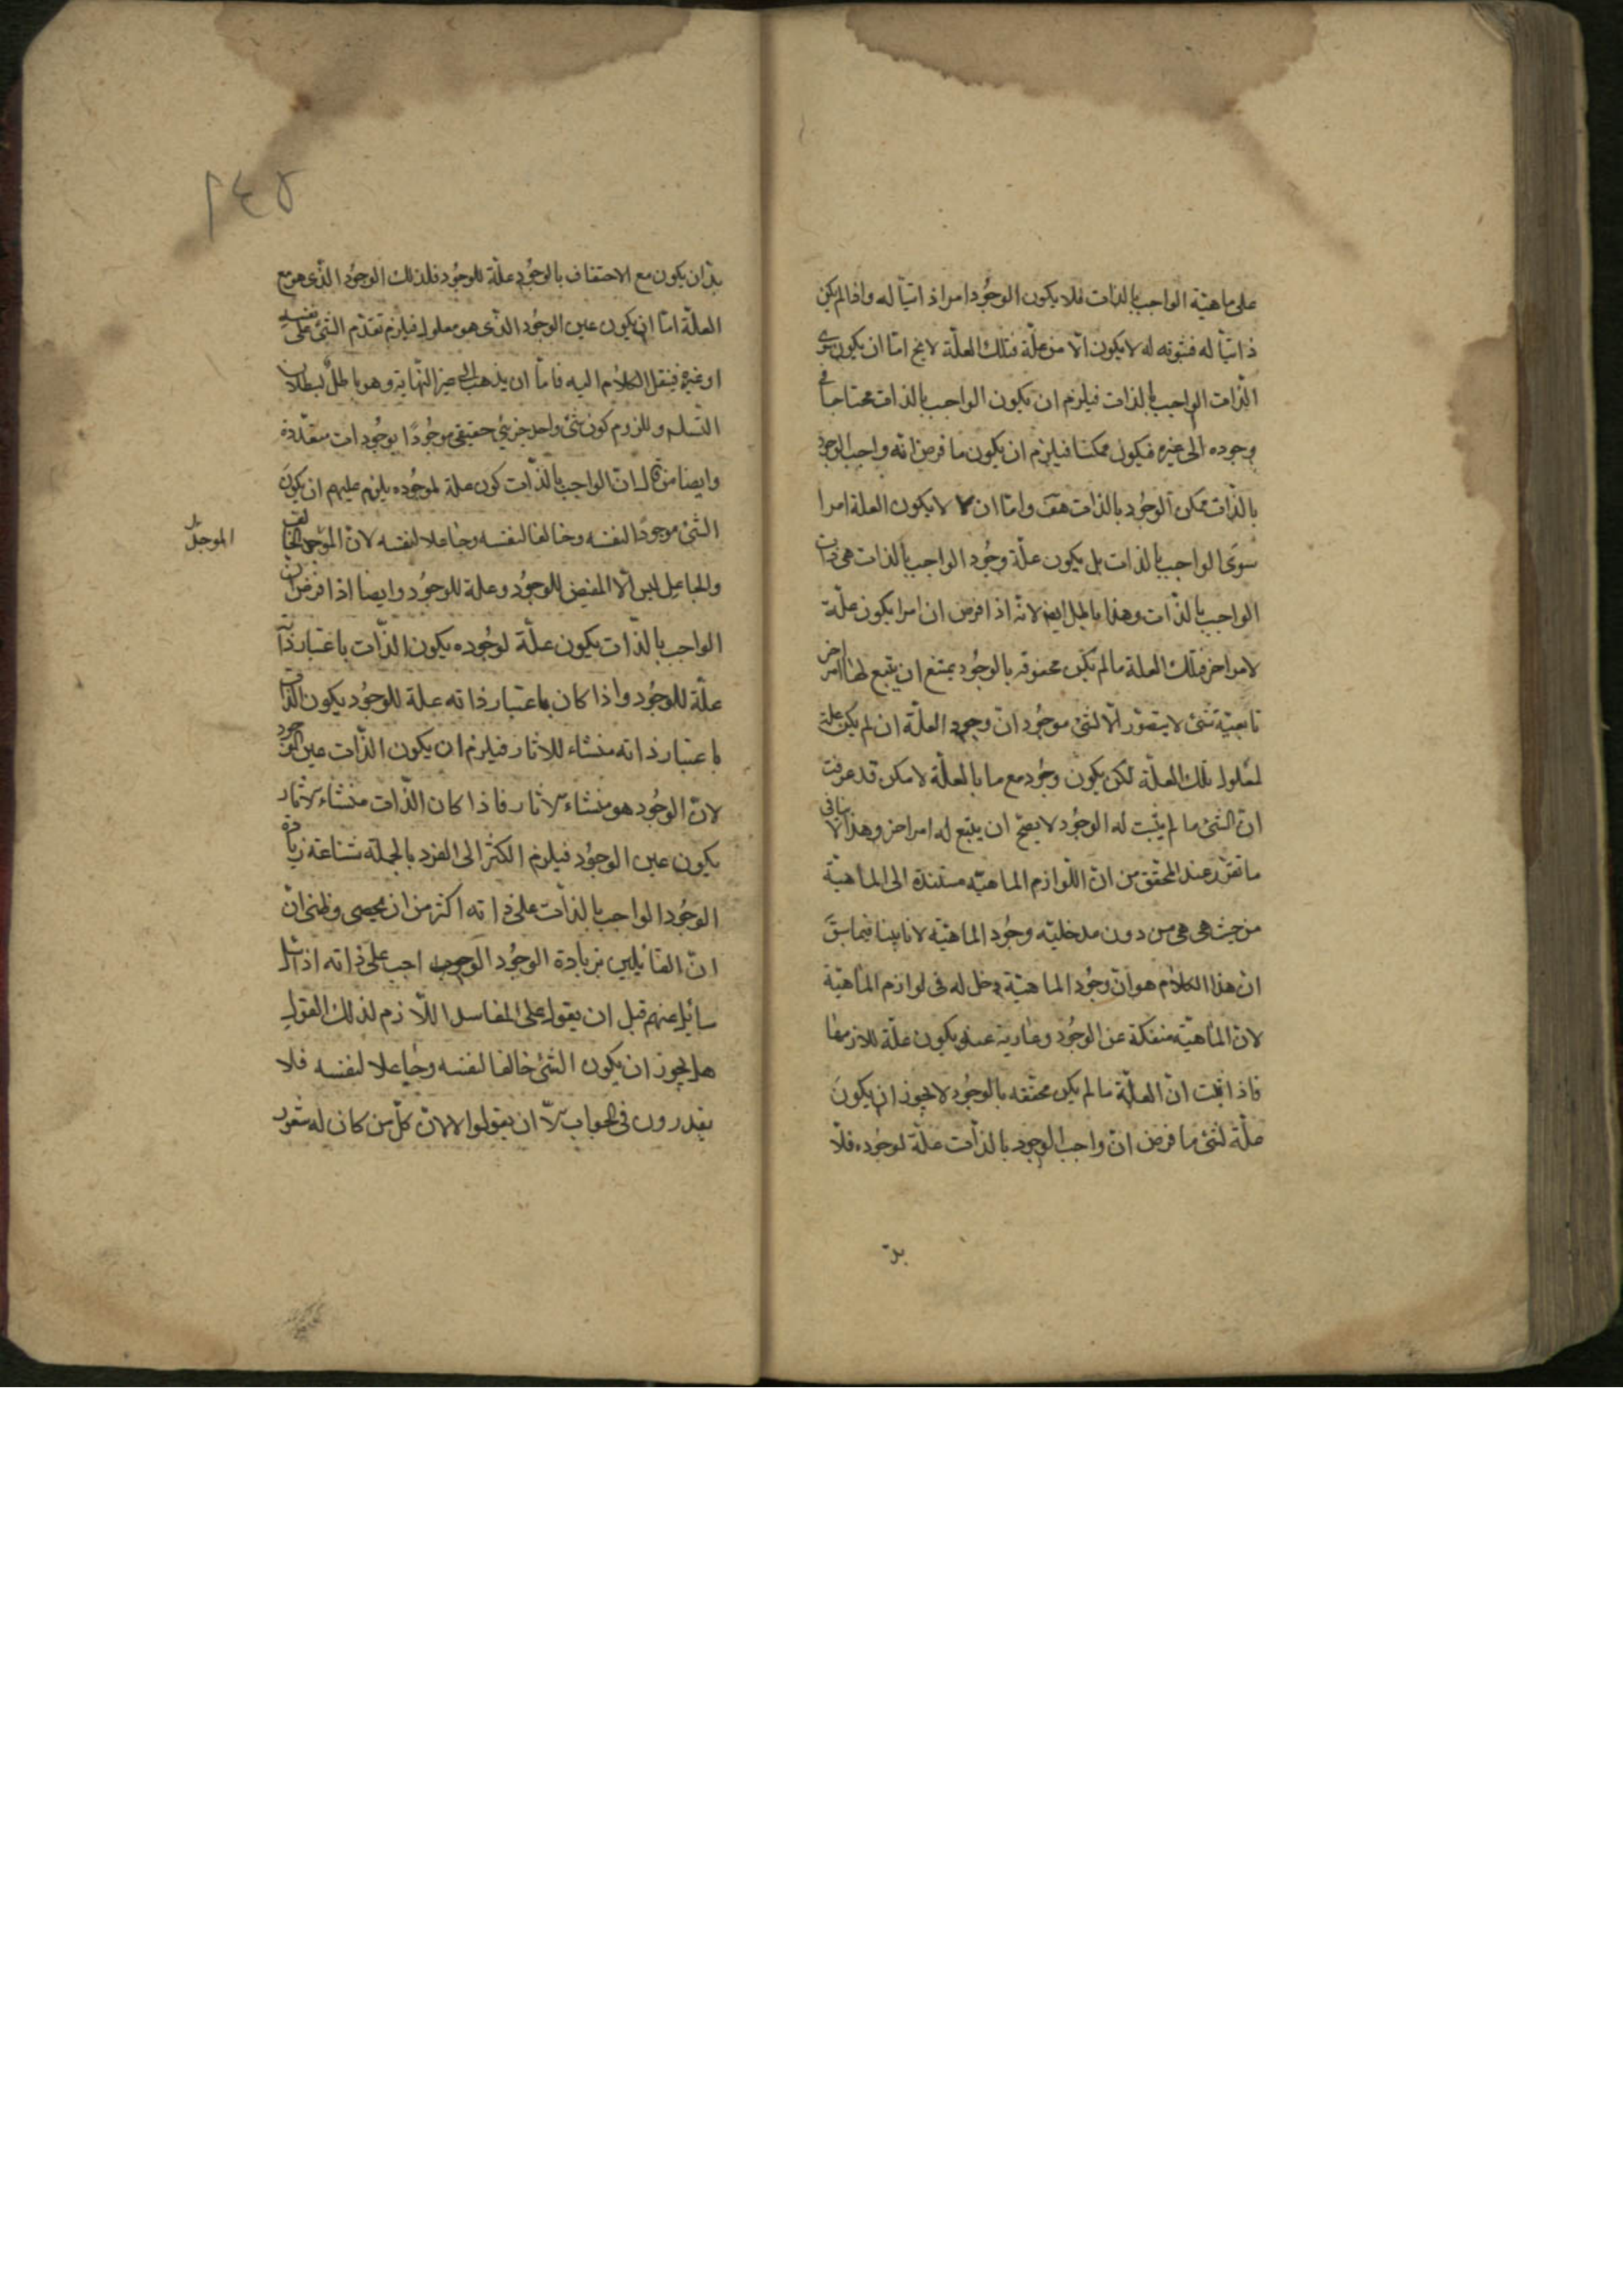 على ماهيّة الواجب بالذات فلا يكون الوجُود امرا ذاتيّا له واذا لم يكن
ذاتيّا له فثبوته له لا يكون الّا من علّة فتلك العلّة لا يخ امّا ان يكون سوى
الذات الواجب بالذات فيلزم ان يكون الواجب بالذات محتاجا فى
وجوده الى غيره فيكون ممكنا فيلزم ان يكون ما فرض انه واجب الوجود
بالذات ممكن الوجُود بالذات هف وامّا ان لا يكون العلة امرا
سوى الواجب بالذات بل يكون علّة وجُود الواجب بالذات هى ذات
الواجب بالذات وهذا باطل ايض لانّه اذا فرض ان امرا يكون علّة
لامر اخر فتلك العلة ما لم يكن محفوفه بالوجُود يمتنع ان يتبع لها امر اخر
تابعيّة شئ لا يتصوّر الّا لشئ موجُود انّ وجود العلّة ان لم يكن علة
لمعلول تلك العلّة لكن يكون وجُود مع ما بالعلّة لا مكن قد عرفت
انّ الشئ ما لم يثبت له الوجُود لا يصحّ ان يتبع له امر اخر وهذا لا ينافى
ما تقرّر عند المحقق من انّ اللّوازم الماهيّه مستندة الى الماهيّة
من حيث هى هى من دون مدخليّه وجُود الماهيّه لانا بينا فيما سبق
ان هذا الكلام هو انّ وجُود الماهيّة دخل له فى لوازم الماهيّة
لانّ الماهيّة منفكة عن الوجُود وعارية عنه يكون علّة للازمها
فاذا ثبت انّ العلّة ما لم يكن محققه بالوجُود لا يجوز ان يكون
علّة لشئ ما فرض انّ واجب الوجود بالذات علّة لوجُوده فلا
بدّ
٢٤٥
بدّ ان يكون مع الاحتفاف بالوجُود علّة للوجُود فلذلك الوجُود الذى هو مع
العلّة امّا ان يكون عين الوجُود الذى هو معلول فيلزم تقدّم الشئ على نفسه
او غيره فينقل الكلام اليه فامّا ان يذهب الى غير النّهاية وهو باطل لبطلان
التسلسل وللزوم كون شئ واحد جزئي حقيقى موجُودًا بوجُودات متعدّدة
وايضا من قال انّ الواجب بالذّات كون علة لموجُوده يلزم عليهم ان يكون
الشئ موجدًا لنفسه وخالفا لنفسه وجاعلا لنفسه لانّ الموجد الخالق
الموجد
والجاعل ليس الّا المفيض للوجُود وعلة للوجُود وايضا اذا فرض ان
الواجب بالذّات يكون علّة لوجُوده يكون الذّات باعتبار ذاته
علّة للوجُود واذا كان باعتبار ذاته علة للوجُود يكون الذات
باعتبار ذاته منشاء للاثار فيلزم ان يكون الذّات عين الوجود
لانّ الوجُود هو منشاء الاثار فاذا كان الذّات منشاء الاثار
يكون عين الوجُود فيلزم الكثر الى الفرد بالجملة شناعة زيادة
الوجُود الواجب بالذات على ذاته اكثر من ان يحصى وظنى انّ
انّ القائلين بزيادة الوجُود الواجب على ذاته اذا سئل
سائل عنهم قبل ان يقول على المفاسد اللّازم لذلك القول
هل يجوز ان يكون الشئ خالفا لنفسه وجاعلا لنفسه فلا
يقدرون فى الجواب الّا ان يقولوا لا لانّ كلّ من كان له شعور